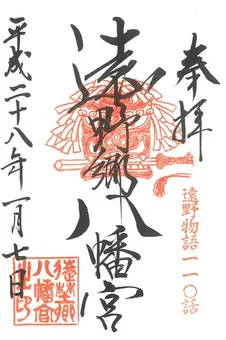 奉拝
遠野物語一一〇話
遠野郷八幡宮
平成二十八年一月七日
遠野郷
八幡宮